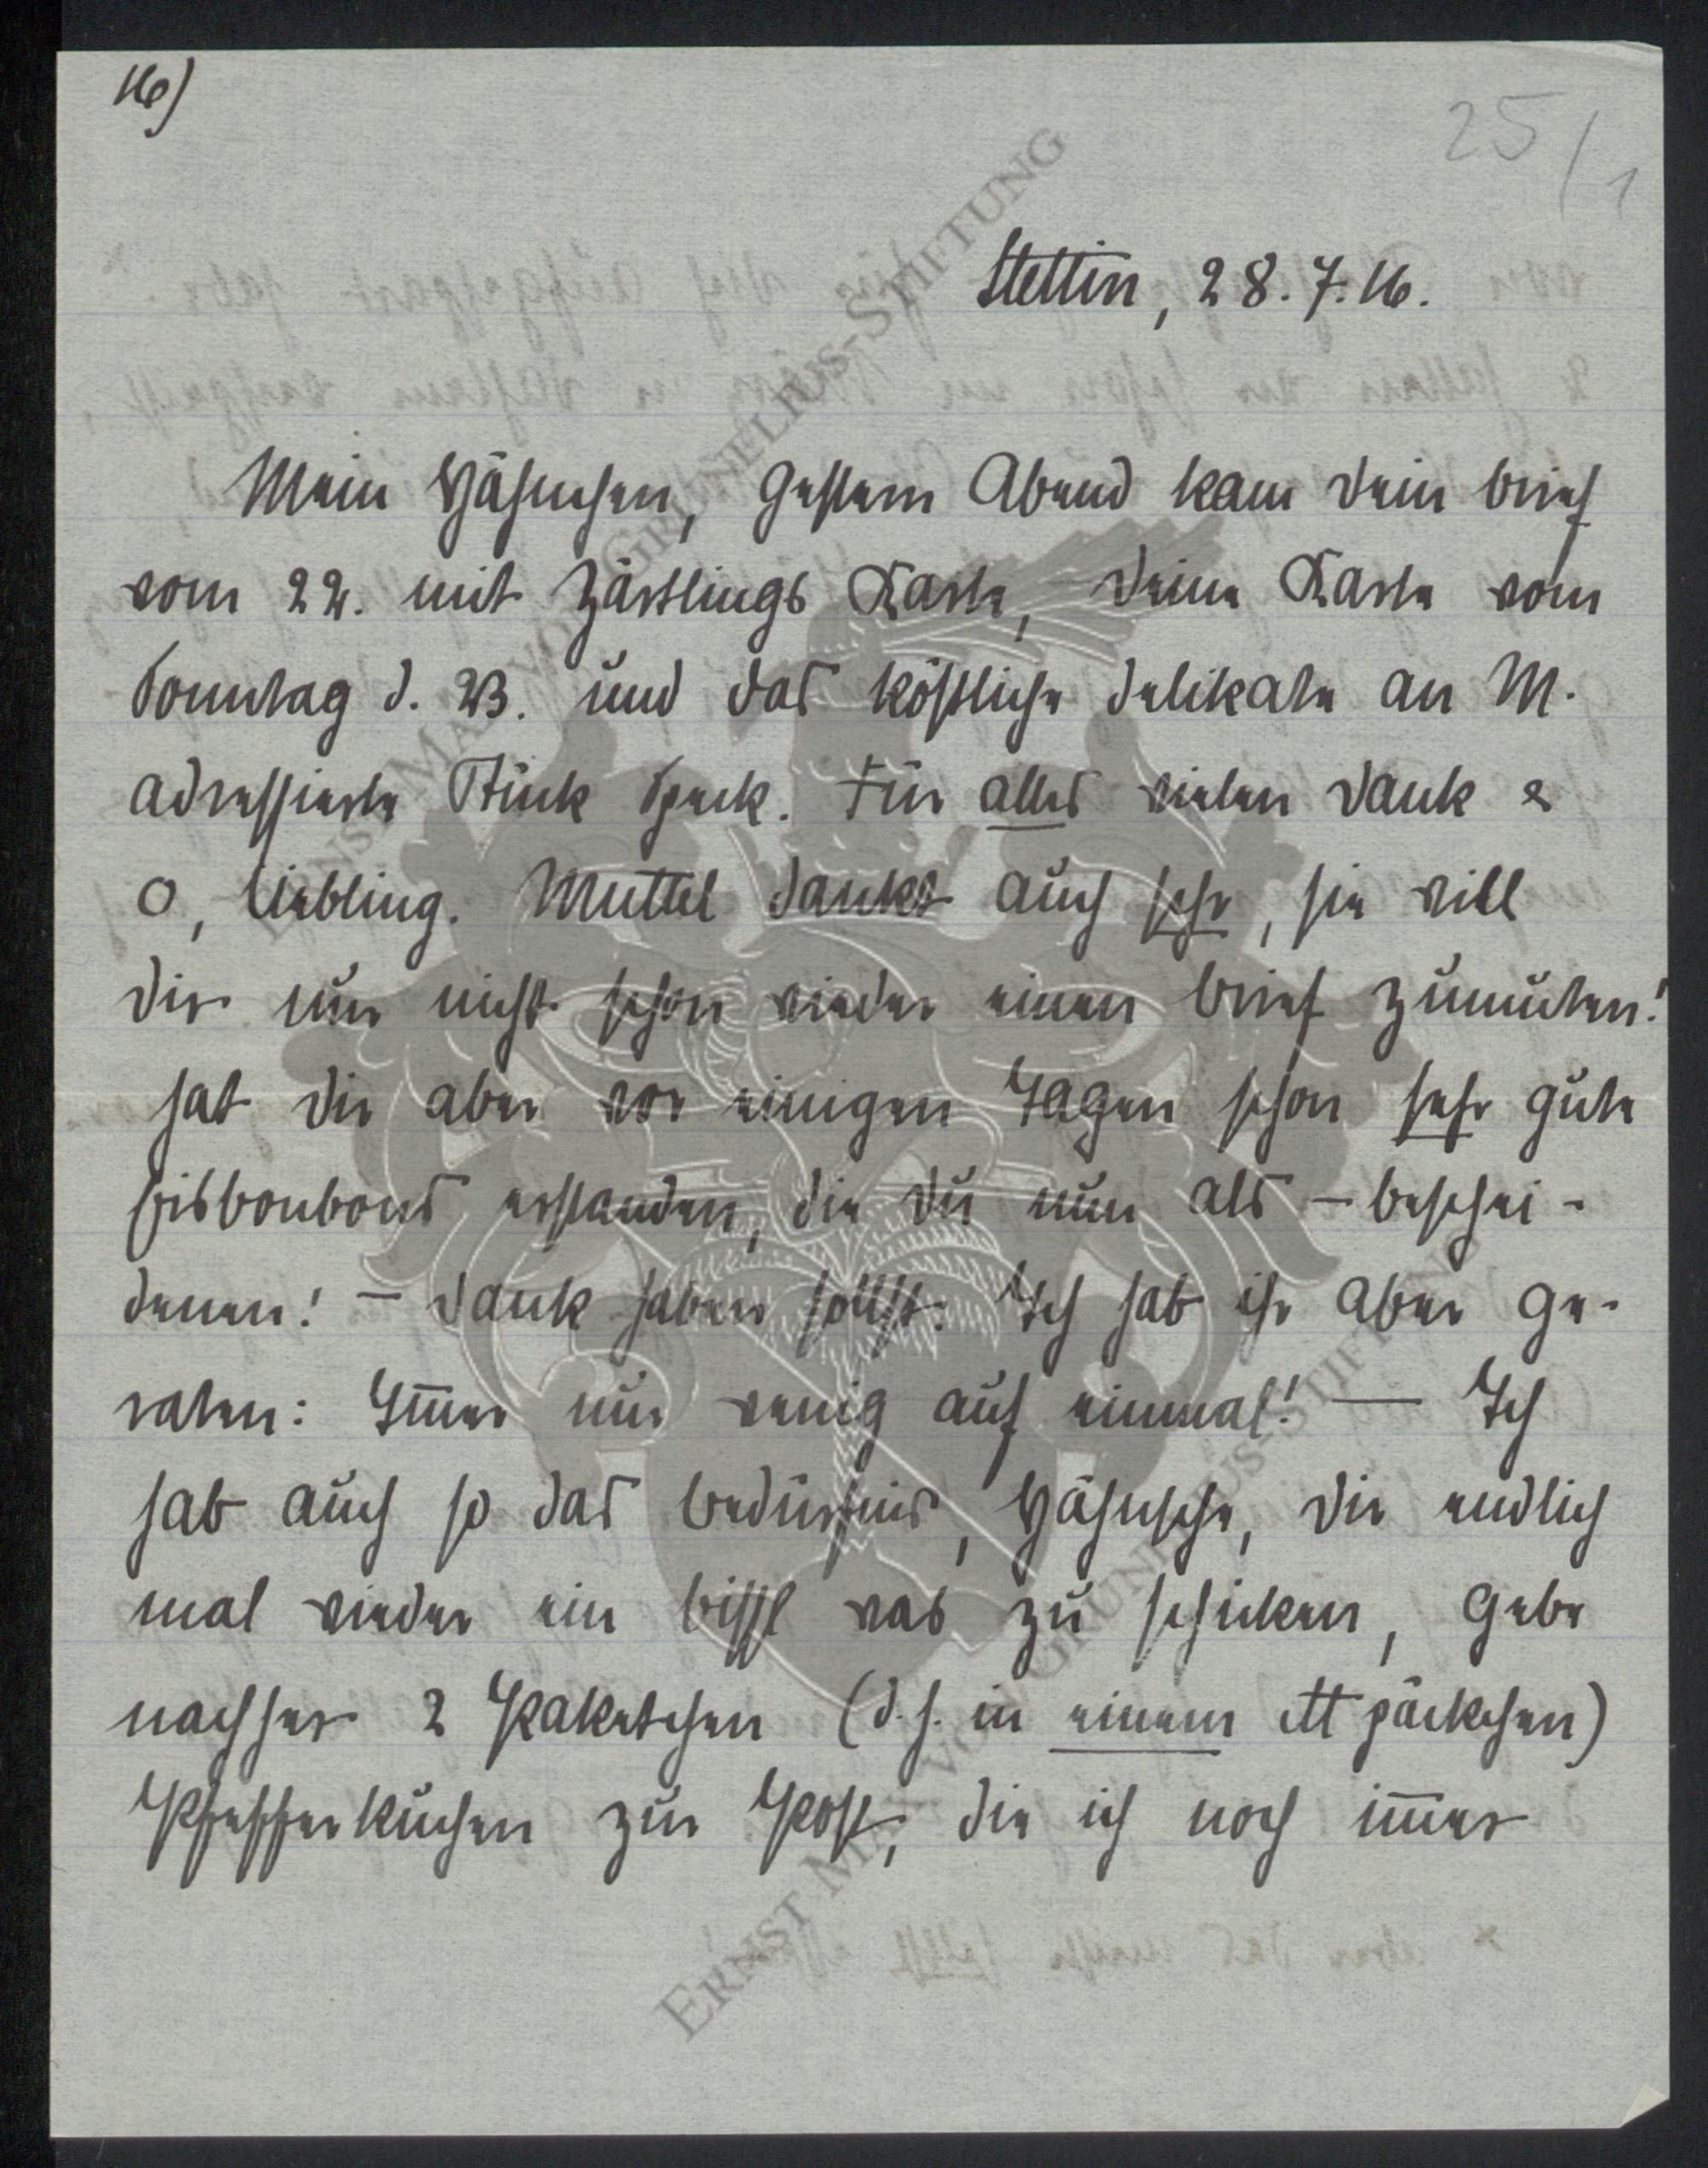 16)
25/1
Stettin, 28.7.16.
Mein Häschen, gestern Abend kam dein brief
vom 22. mit Zärtlings Karte, deine Karte vom
Sonntag d. 23. und das köstliche delikate an M.
adressierte Stück Speck. Für alles vielen dank &
o, liebling. Muttel dankt auch sehr, sie will
dir nur nicht schon wieder einen brief zumuten!
hat dir aber vor einigen Tagen schon sehr gute
bisbonbons erstanden, die du nun als – beschei-
denen! – dank haben sollst. Ich hab ihr aber ge-
raten: Im̅er nur wenig auf einmal! — Ich
hab auch so das bedürfnis, Häschen, dir endlich
mal wieder ein bissl was zu schicken, gebe
nachher 2 Paketchen (d.h. in einem M päckchen)
Pfefferkuchen zur Post, die ich noch im̅er
ERNST MAX VON GRUNELIUS-STIFTUNG
ERNST MAX VON GRUNELIUS-STIFTUNG